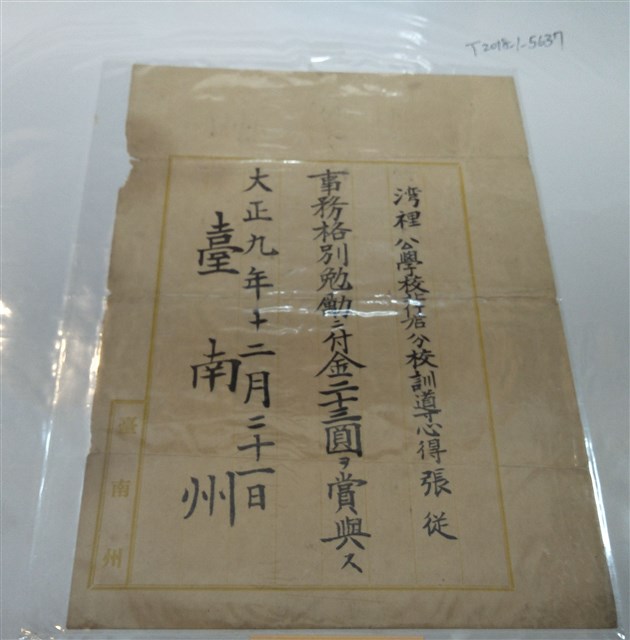 T2018-1-5637
湾裡公學校分校訓導心得 張 従
事務格別勉勵ニ付金二十三圓ヲ賞與ス
大正九年十二月二十一日
臺南州
臺南州